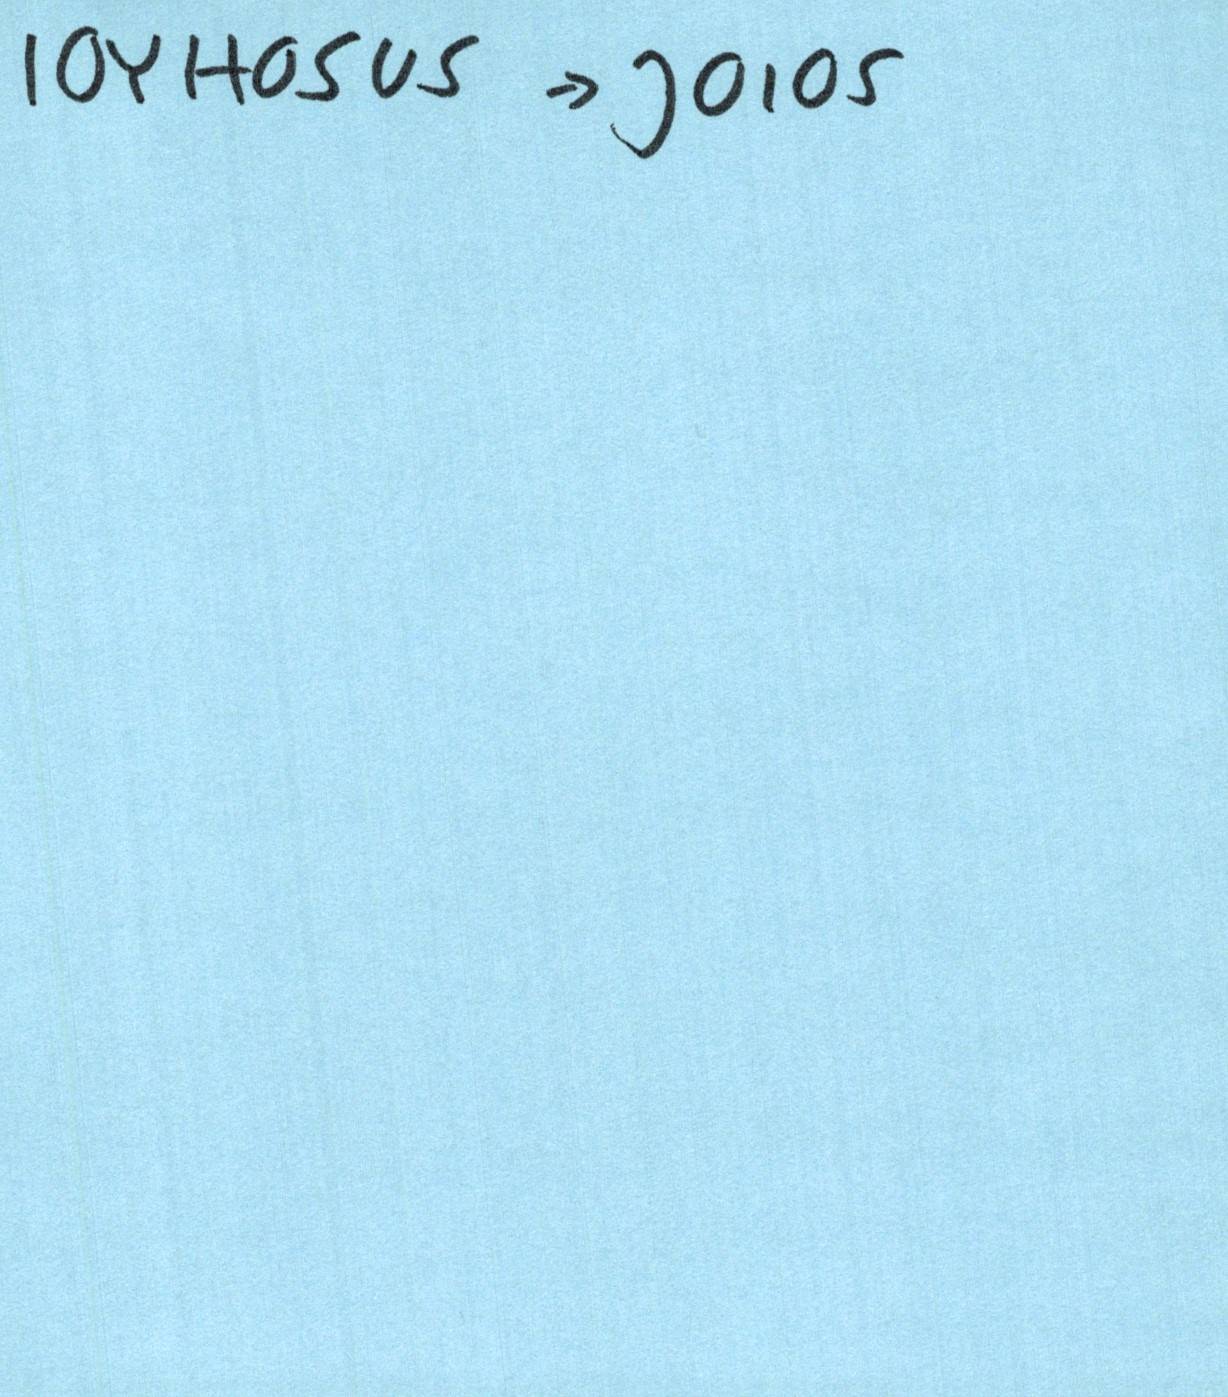 IOYHOSUS → JOIOS